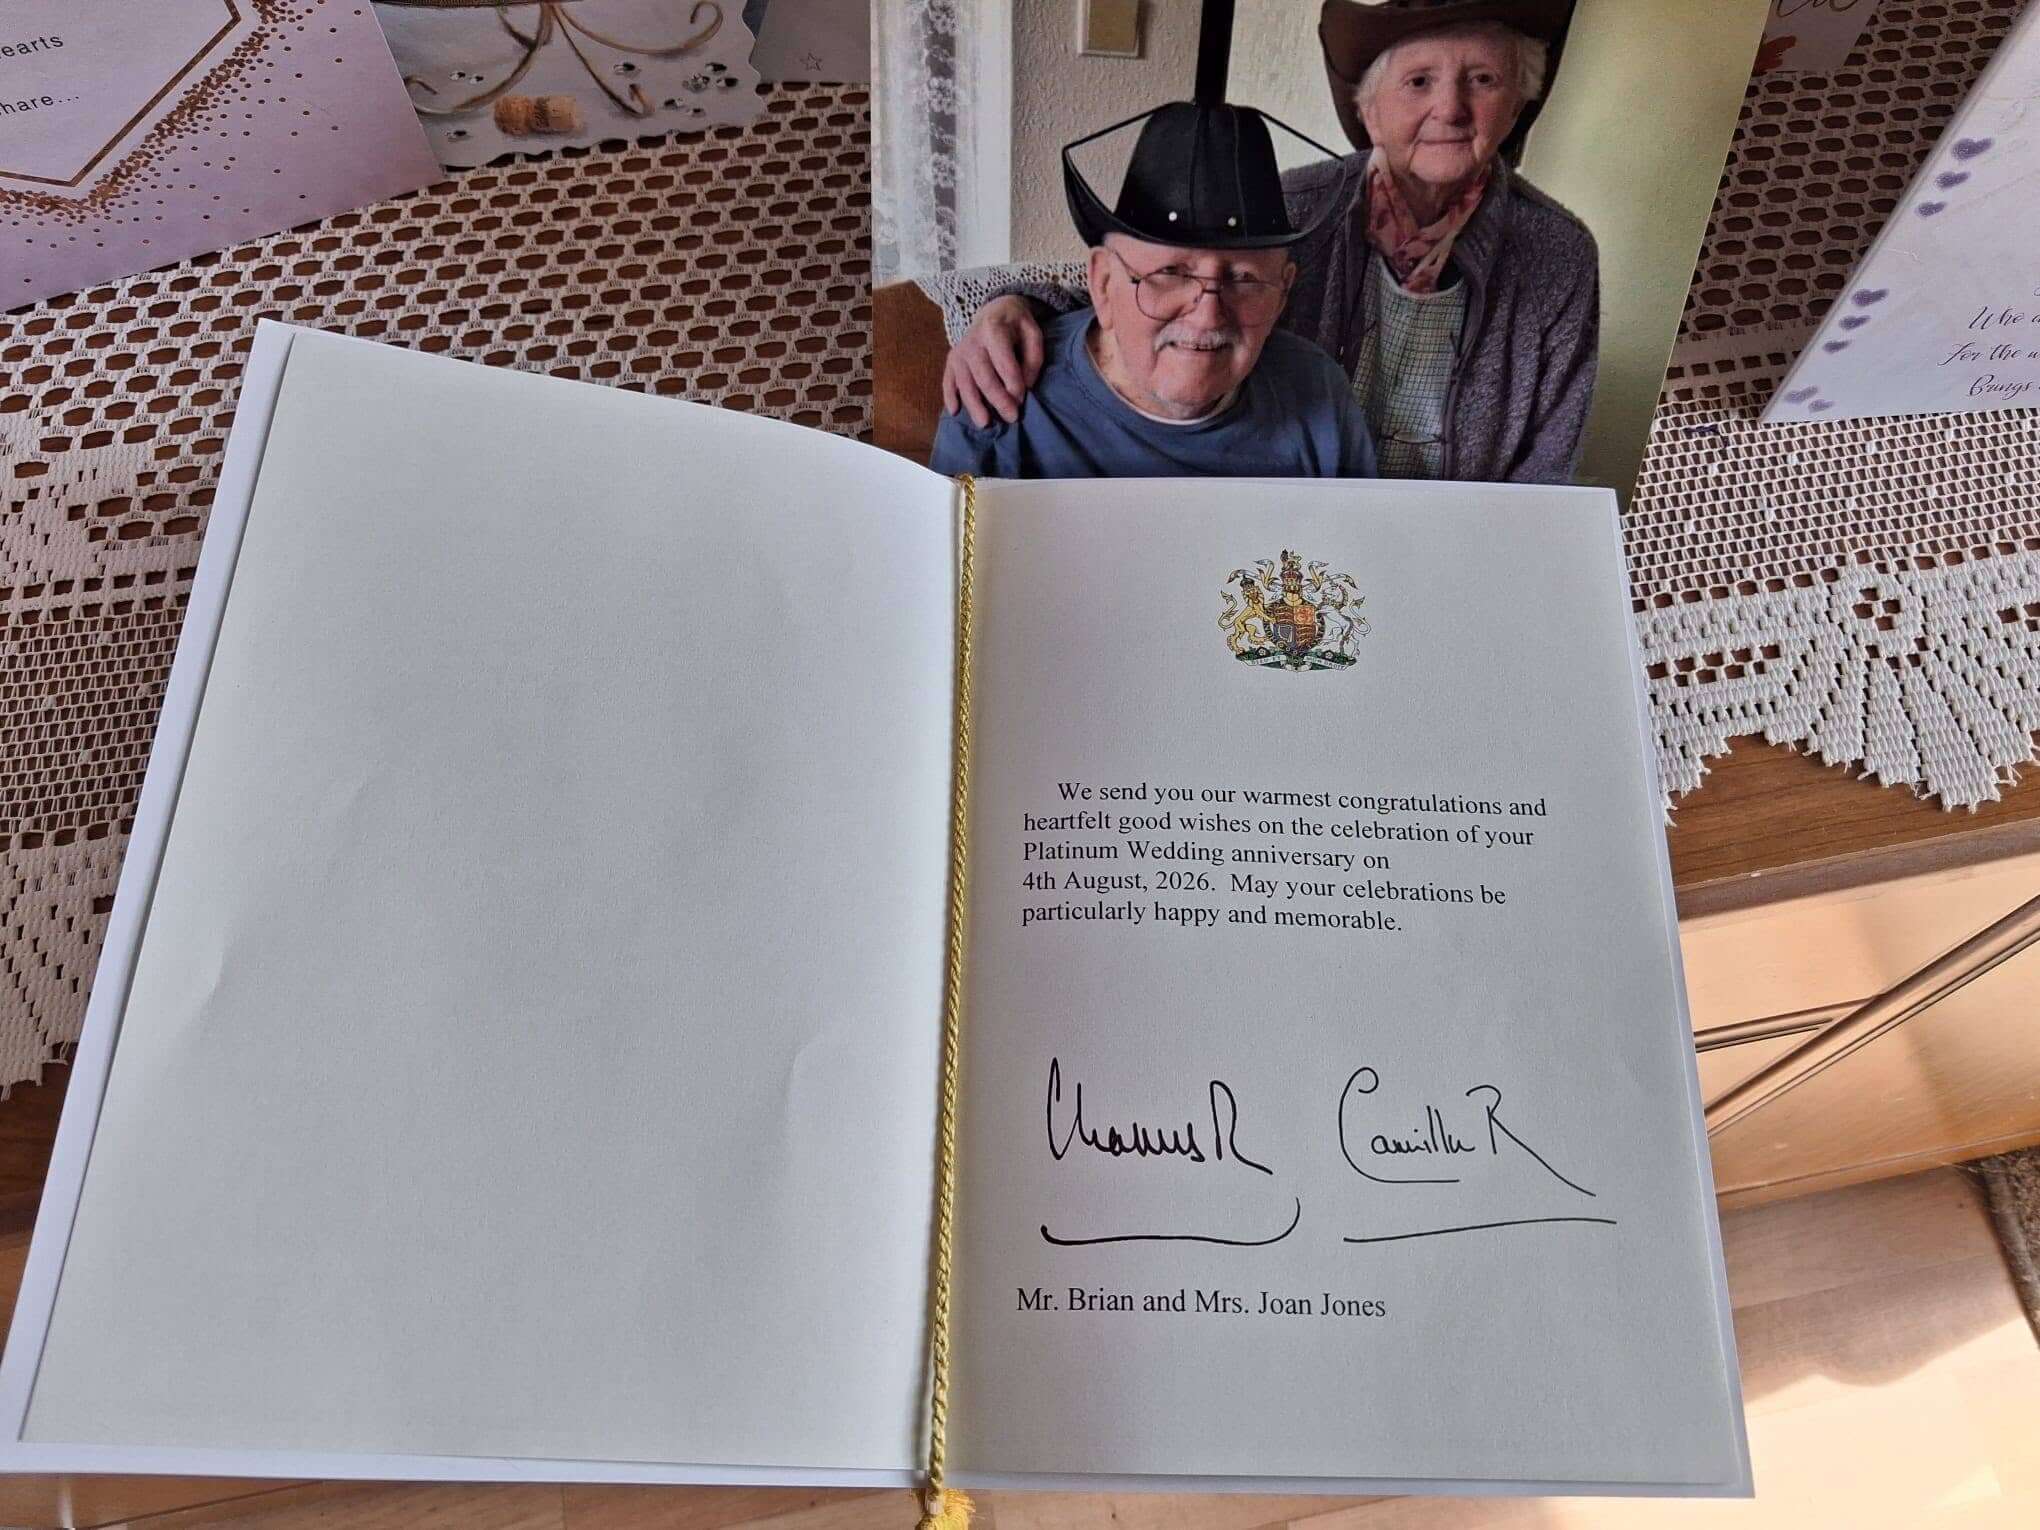 earts
hare...
Who
For the
Brings
We send you our warmest congratulations and
heartfelt good wishes on the celebration of your
Platinum Wedding anniversary on
4th August, 2026. May your celebrations be
particularly happy and memorable.
Charles R
Camilla R
Mr. Brian and Mrs. Joan Jones